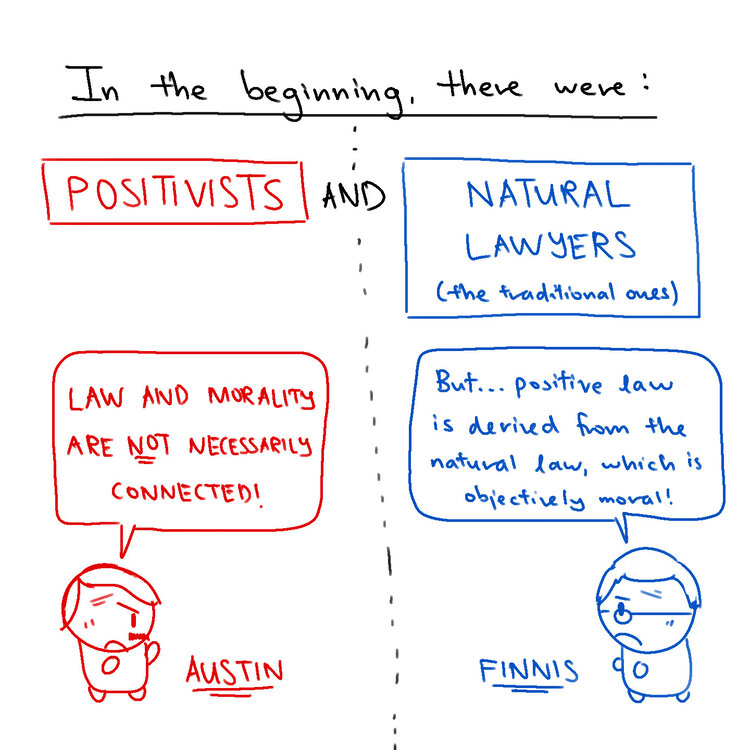 In the beginning, there were:
POSITIVISTS
AND
NATURAL
LAWYERS
(the traditional ones)
LAW AND MORALITY
ARE NOT NECESSARILY
CONNECTED!
But... positive law
is derived from the
natural law, which is
objectively moral!
AUSTIN
FINNIS